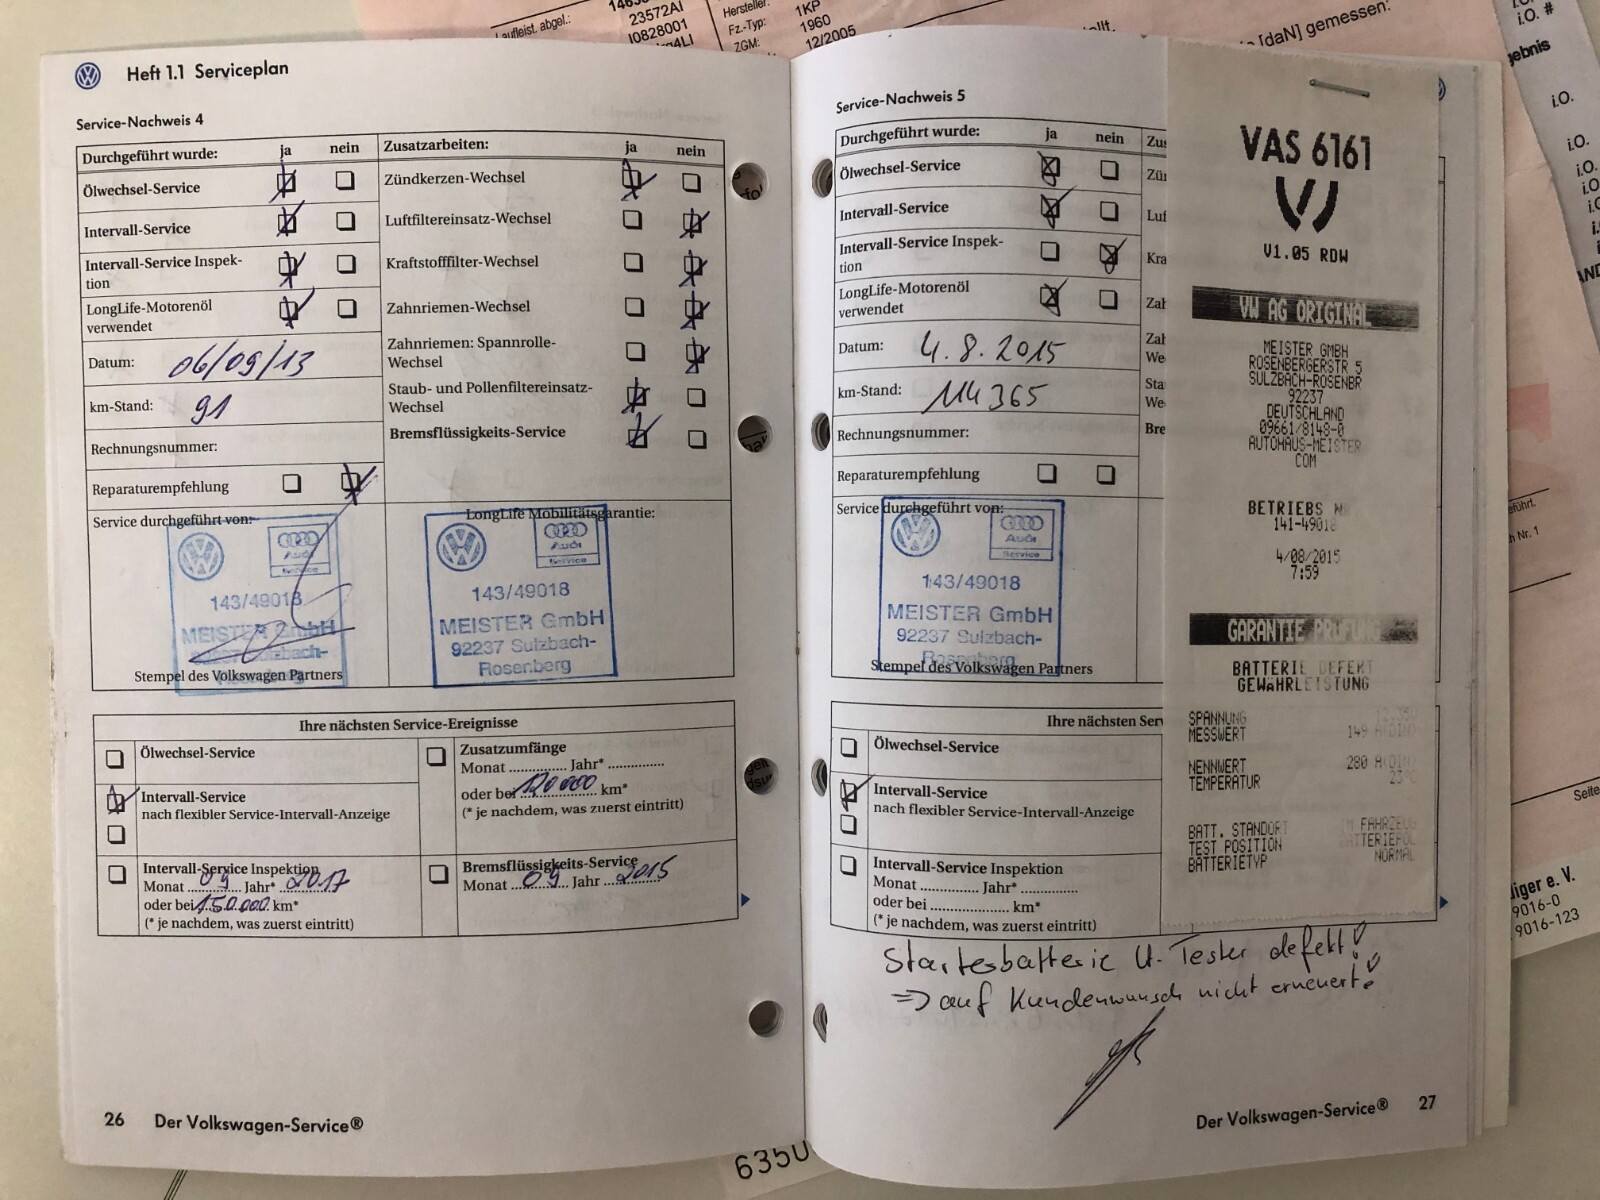 Laufleist. abgel.:
23572AI
I0828001
Hersteller:
Fz.-Typ:
ZGM:
1KP
1960
12/2005
[daN] gemessen:
i.O. #
i.O.
i.O.
i.O.
Heft 1.1 Serviceplan
Service-Nachweis 4
Durchgeführt wurde: ja nein
Ölwechsel-Service
Intervall-Service
Intervall-Service Inspek-
tion
LongLife-Motorenöl
verwendet
Datum: 06/09/13
km-Stand: 91
Rechnungsnummer:
Reparaturempfehlung
Zusatzarbeiten: ja nein
Zündkerzen-Wechsel
Luftfiltereinsatz-Wechsel
Kraftstofffilter-Wechsel
Zahnriemen-Wechsel
Zahnriemen: Spannrolle-
Wechsel
Staub- und Pollenfiltereinsatz-
Wechsel
Bremsflüssigkeits-Service
Service durchgeführt von:
Audi
Service
143/49018
MEISTER GmbH
92237 Sulzbach-
Rosenberg
Stempel des Volkswagen Partners
LongLife Mobilitätsgarantie:
Audi
Service
143/49018
MEISTER GmbH
92237 Sulzbach-
Rosenberg
Ihre nächsten Service-Ereignisse
Ölwechsel-Service
Intervall-Service
nach flexibler Service-Intervall-Anzeige
Intervall-Service Inspektion
Monat 09 Jahr* 2017
oder bei 150.000 km*
(* je nachdem, was zuerst eintritt)
Zusatzumfänge
Monat ............ Jahr* ..............
oder bei 120000 km*
(* je nachdem, was zuerst eintritt)
Bremsflüssigkeits-Service
Monat 09 Jahr 2015
26 Der Volkswagen-Service®
Service-Nachweis 5
Durchgeführt wurde: ja nein
Ölwechsel-Service
Intervall-Service
Intervall-Service Inspek-
tion
LongLife-Motorenöl
verwendet
Datum: 4.8.2015
km-Stand: 114365
Rechnungsnummer:
Reparaturempfehlung
Zus
Zün
Luf
Kra
Zah
Zah
We
Sta
We
Bre
Service durchgeführt von:
Audi
Service
143/49018
MEISTER GmbH
92237 Sulzbach-
Rosenberg
Stempel des Volkswagen Partners
Ihre nächsten Serv
Ölwechsel-Service
Intervall-Service
nach flexibler Service-Intervall-Anzeige
Intervall-Service Inspektion
Monat ............ Jahr* ............
oder bei ................ km*
(* je nachdem, was zuerst eintritt)
VAS 6161
V1.05 RDW
VW AG ORIGINAL
MEISTER GMBH
ROSENBERGERSTR 5
SULZBACH-ROSENBR
92237
DEUTSCHLAND
09661/8148-0
AUTOHAUS-MEISTER
COM
BETRIEBS N
141-49018
4/08/2015
7:59
GARANTIE PRüFUNG
BATTERIE DEFEKT
GEWäHRLEISTUNG
SPANNUNG
MESSWERT 149 A(DIN)
NENNWERT 280 A(DIN)
TEMPERATUR
BATT. STANDORT IM FAHRZEUG
TEST POSITION BATTERIEPOL
BATTERIETYP NORMAL
Starterbatterie lt. Tester defekt!
=> auf Kundenwunsch nicht erneuert!
Der Volkswagen-Service® 27
Seite
9016-0
9016-123
6350